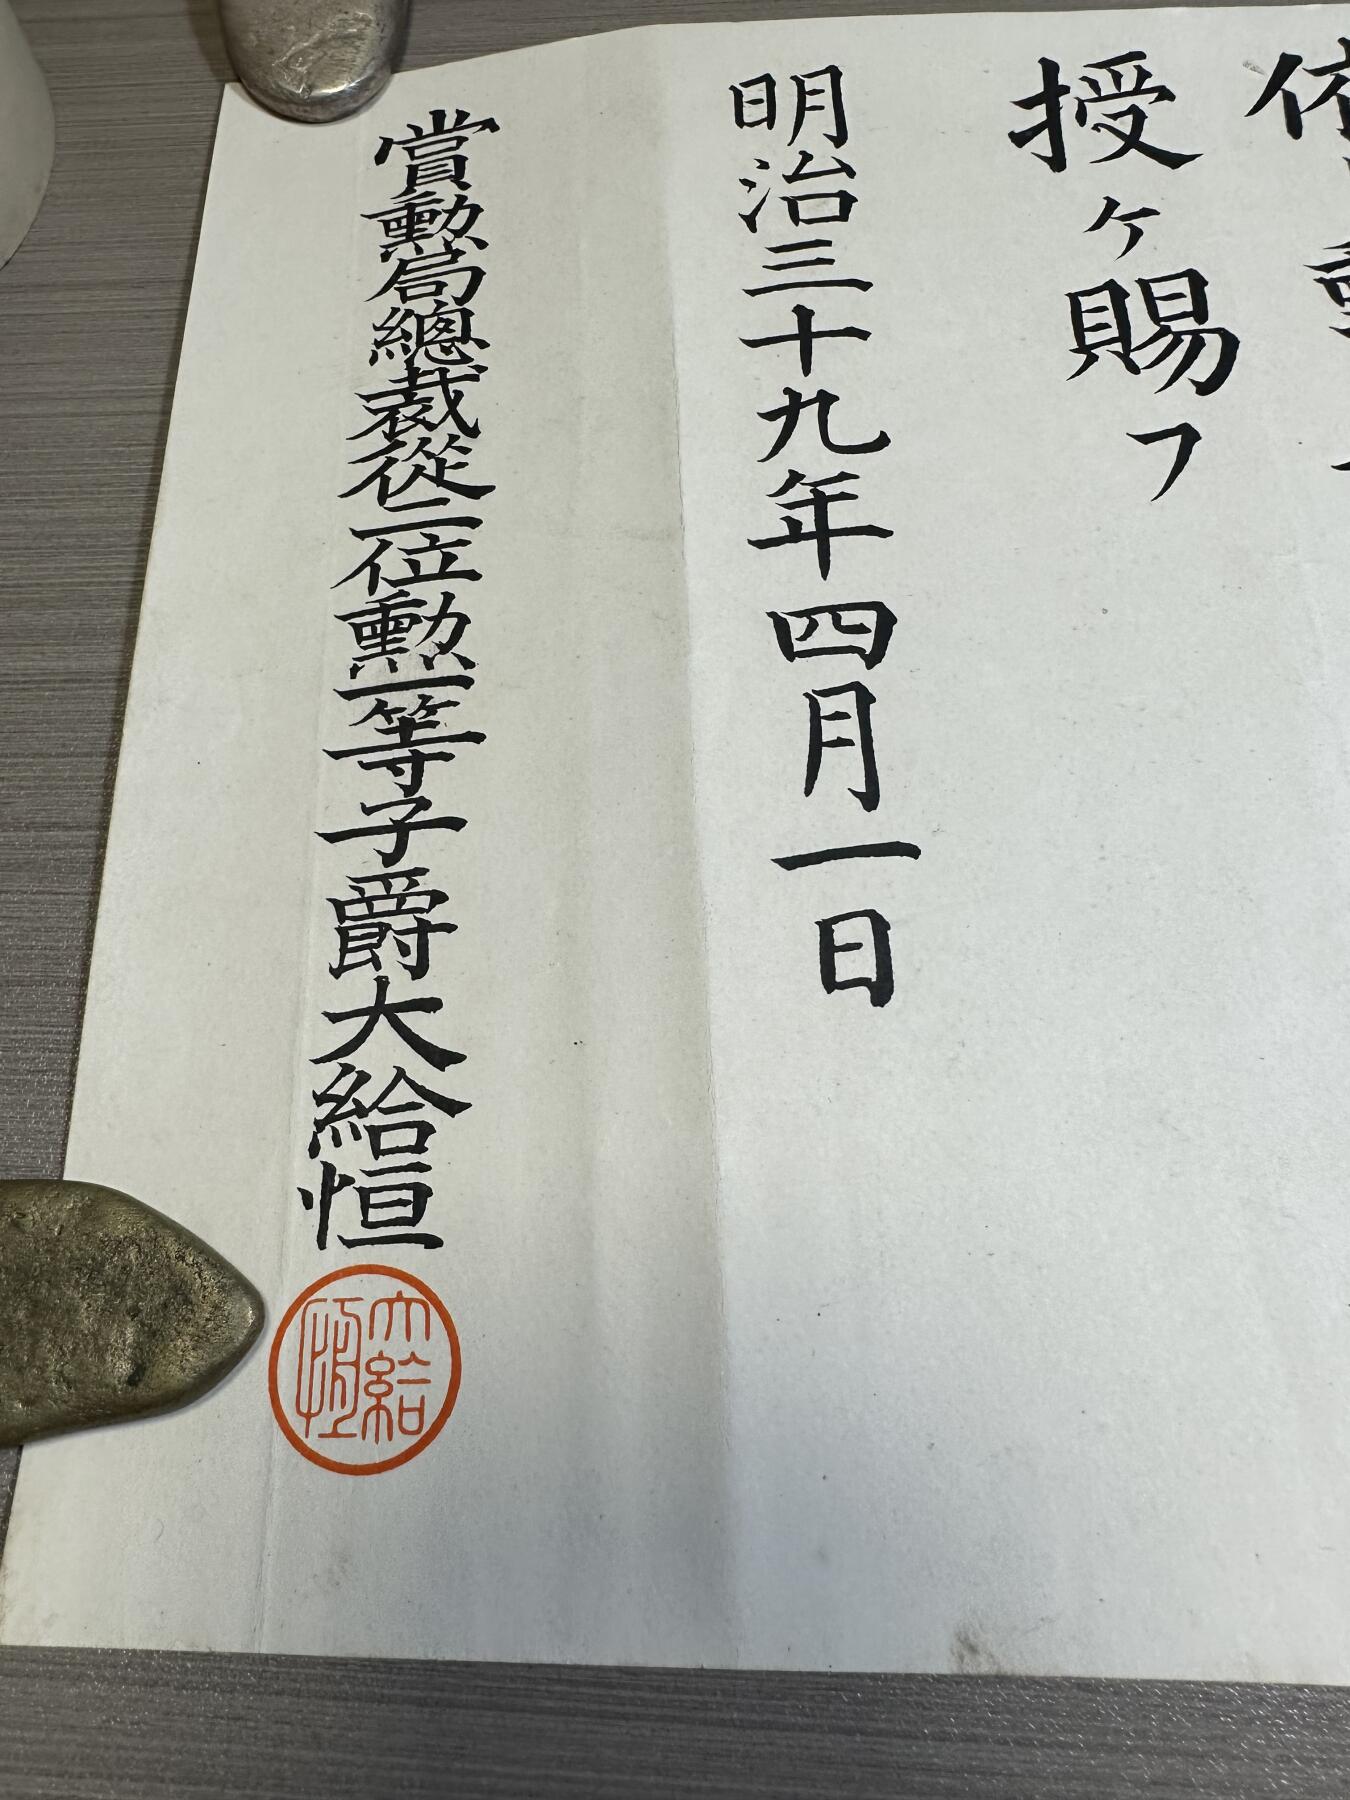 依
勲
授ケ賜フ
明治三十九年四月一日
賞勳局總裁從二位勳一等子爵大給恒
大給
恒